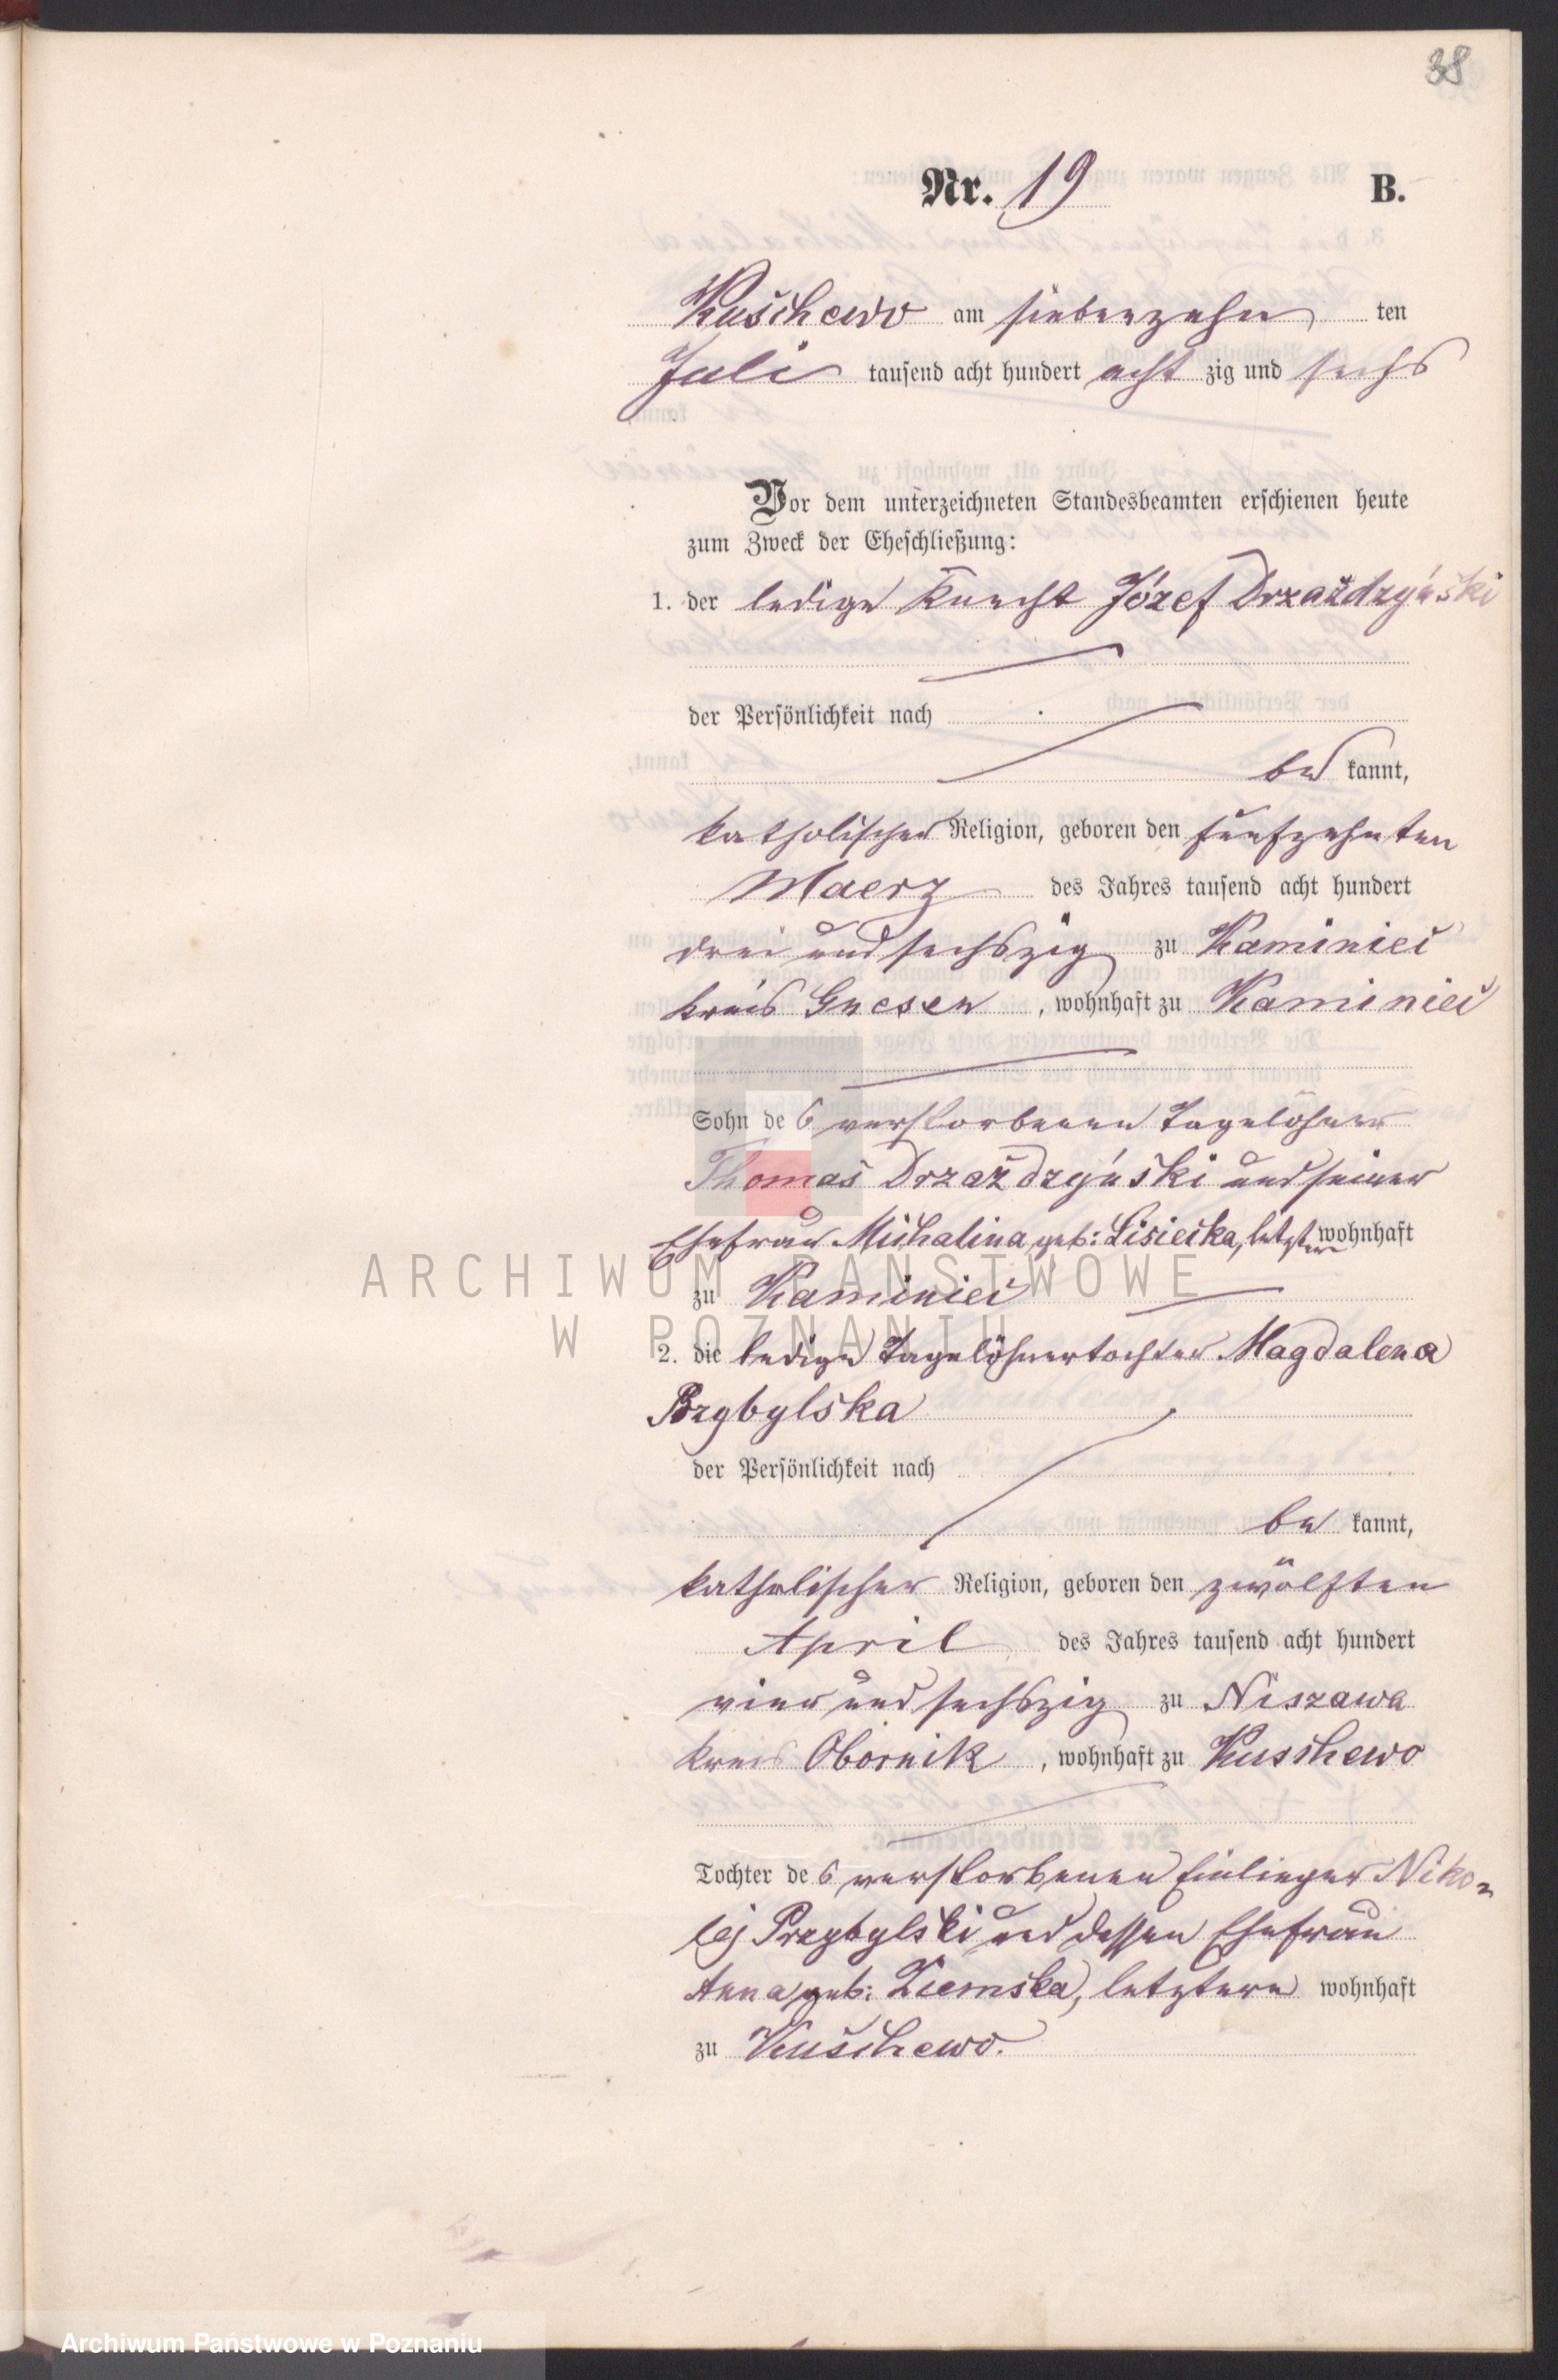 38
Nr. 19 B.
Kuschewo am siebenzehn ten
Juli tausend acht hundert acht zig und sechs
Vor dem unterzeichneten Standesbeamten erschienen heute
zum Zweck der Eheschließung:
1. der ledige Knecht Józef Drzażdzyński
der Persönlichkeit nach
be kannt,
katholischer Religion, geboren den fünfzehnten
Maerz des Jahres tausend acht hundert
drei und sechszig zu Kaminiec
Kreis Gnesen, wohnhaft zu Kaminiec
Sohn des verstorbenen Tagelöhner
Thomas Drzażdzyński und seiner
Ehefrau Michalina geb: Lisiecka, letztere wohnhaft
zu Kaminiec
ARCHIWUM PAŃSTWOWE
W POZNANIU
2. die ledige Tagelöhnertochter Magdalena
Przybylska
der Persönlichkeit nach
be kannt,
katholischer Religion, geboren den zwölften
April des Jahres tausend acht hundert
vier und sechszig zu Niszawa
Kreis Obornik, wohnhaft zu Kuschewo
Tochter des verstorbenen Einlieger Niko-
laj Przybylski und dessen Ehefrau
Anna geb: Ziemska, letztere wohnhaft
zu Kuschewo.
Archiwum Państwowe w Poznaniu